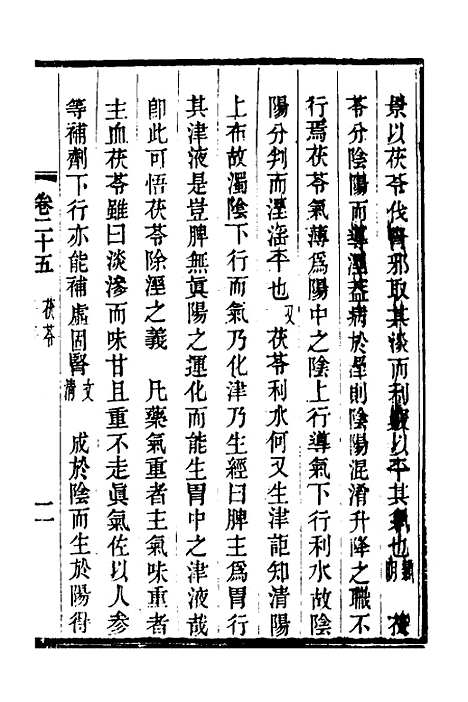 景以茯苓伐腎邪取其淡而利竅以平其氣也 茯
苓分陰陽而導溼益病於溼則陰陽混淆升降之職不
行焉茯苓氣薄爲陽中之陰上行導氣下行利水故陰
陽分判而溼淫平也 又 茯苓利水何又生津詎知清陽
上布故濁陰下行而氣乃化津乃生經曰脾主爲胃行
其津液是豈脾無眞陽之運化而能生胃中之津液哉
卽此可悟茯苓除溼之義 凡藥氣重者主氣味重者
主血茯苓雖曰淡滲而味甘且重不走眞氣佐以人參
等補劑下行亦能補虛固腎 文清 成於陰而生於陽得
卷二十五 茯苓 二